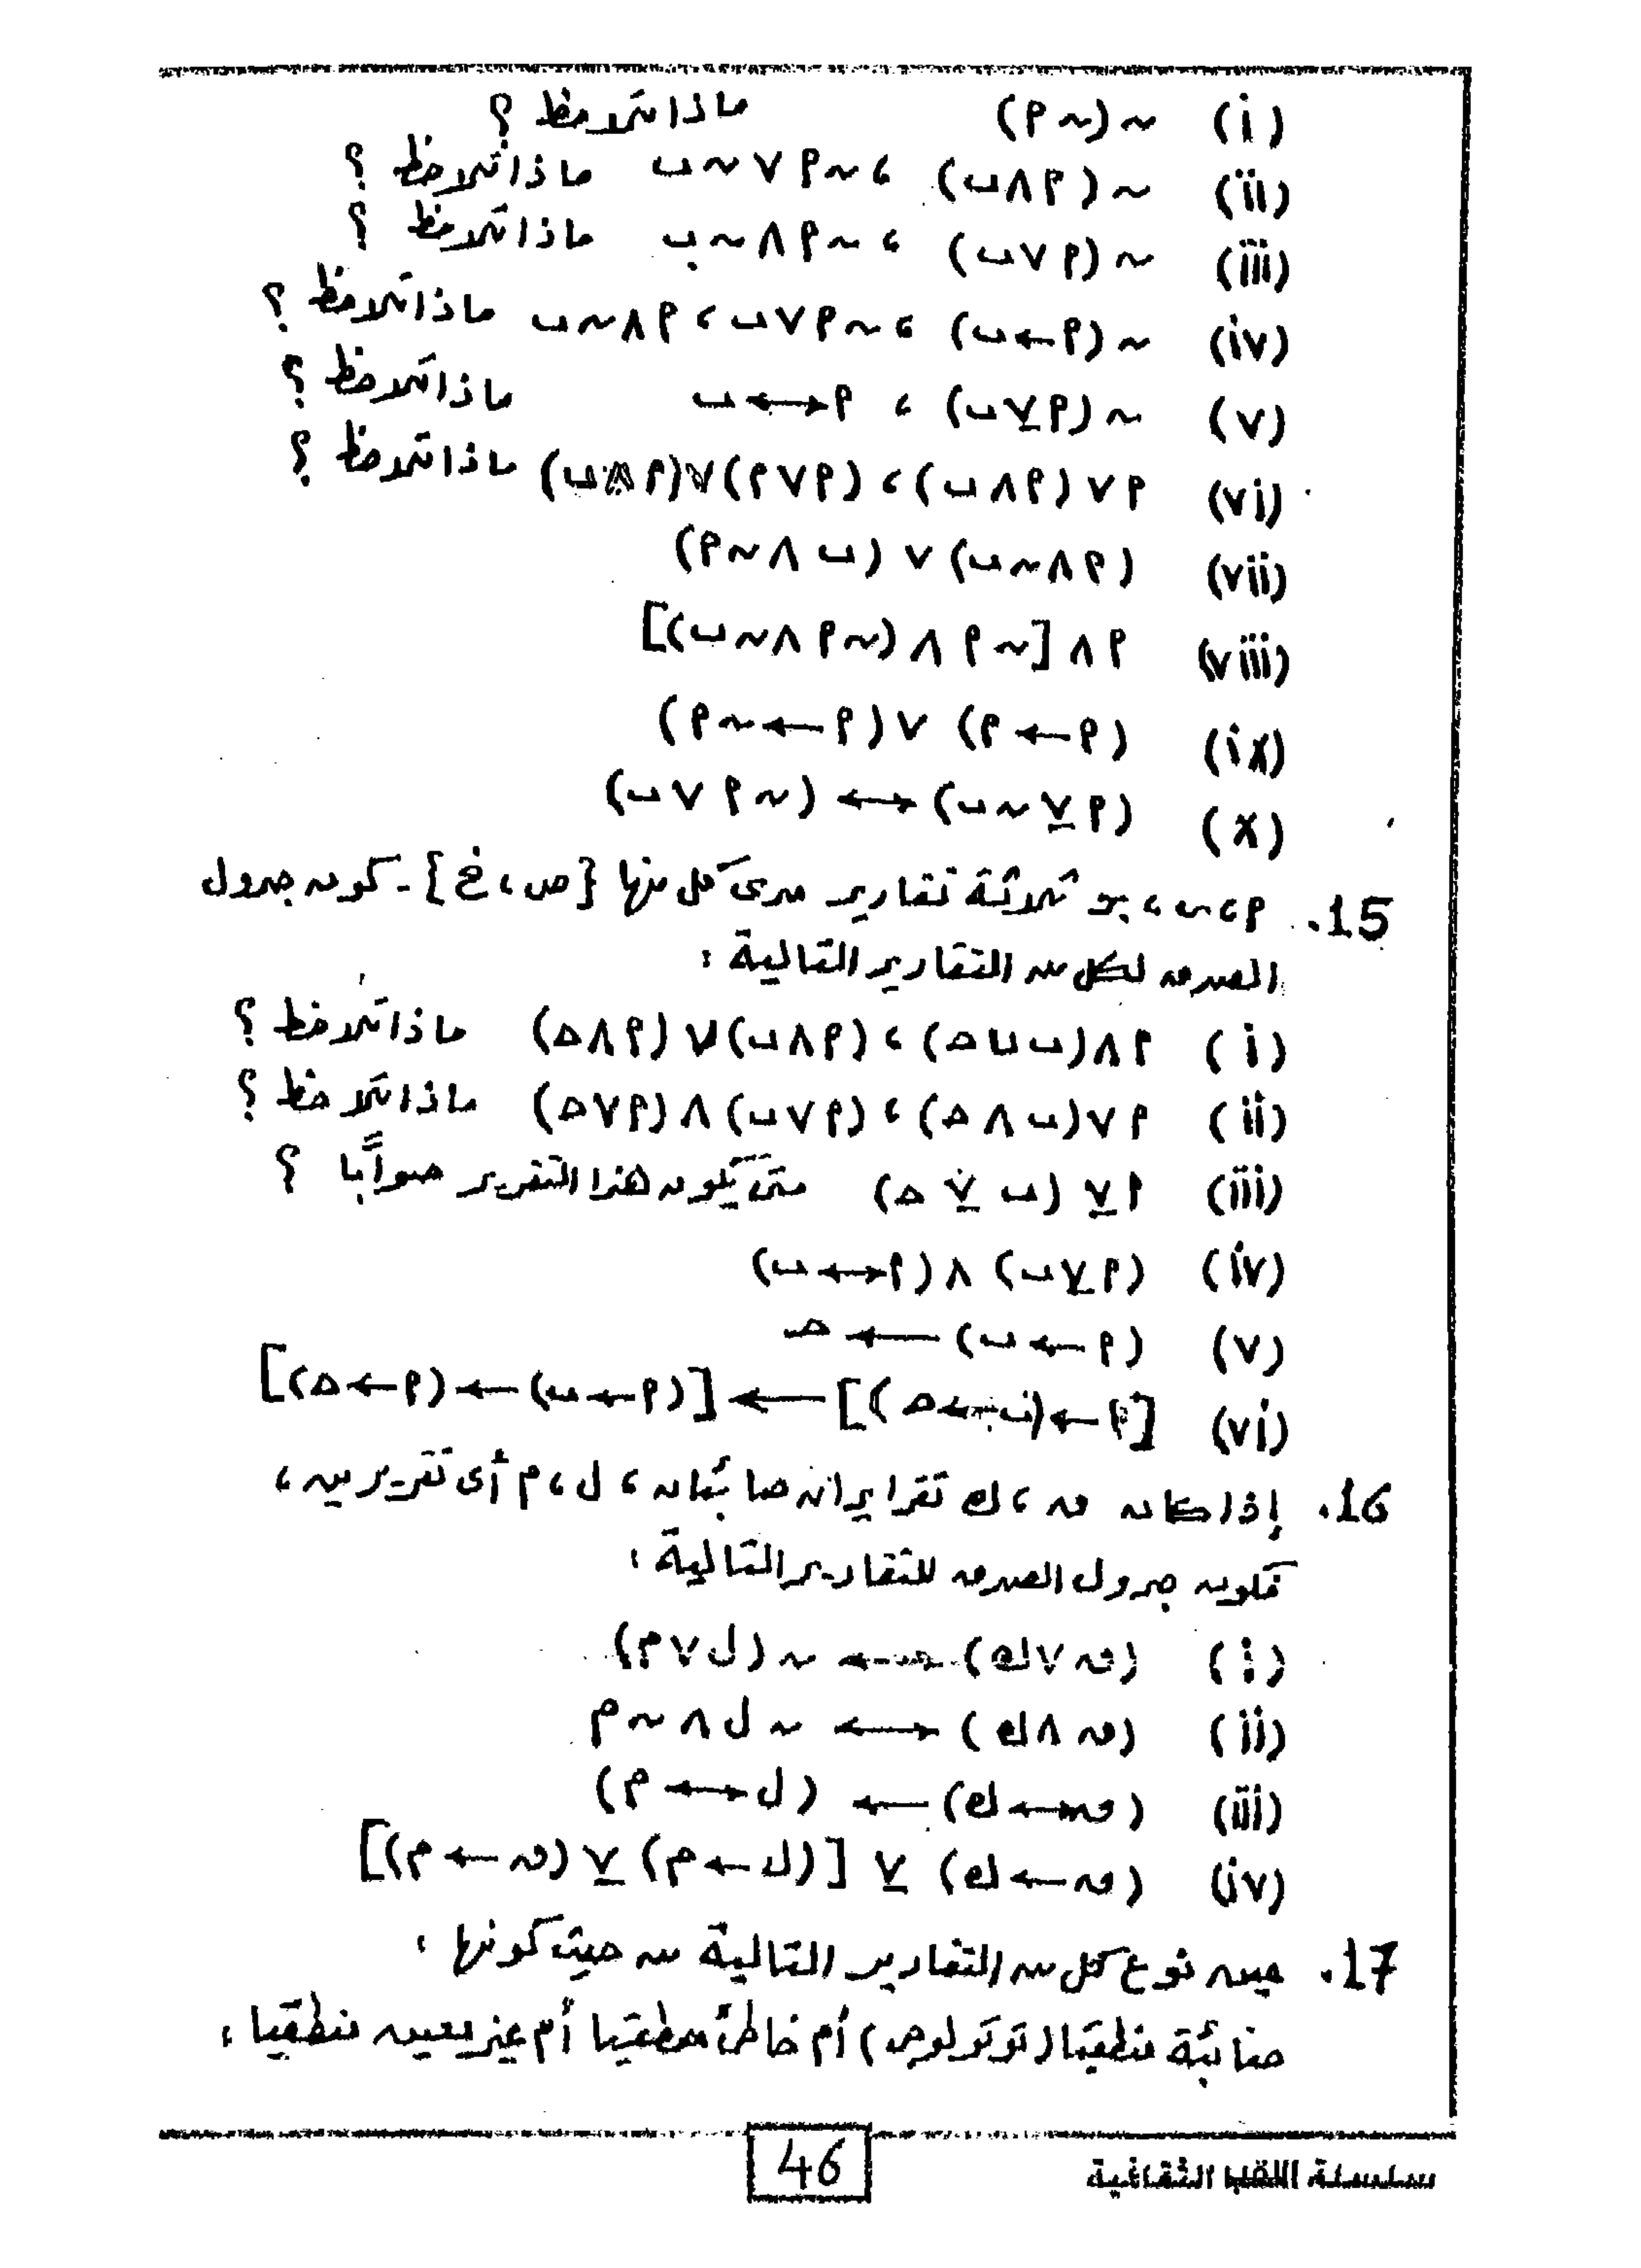 (i) ~(~م) ماذا تلاحظ ؟
(ii) ~(م∧ب) ، ~م∨~ب ماذا تلاحظ ؟
(iii) ~(م∨ب) ، ~م∧~ب ماذا تلاحظ ؟
(iv) ~(م←ب) ، ~م∨ب ، م∧~ب ماذا تلاحظ ؟
(v) ~(م⊻ب) ، م↔ب ماذا تلاحظ ؟
(vi) م∨(م∧ب) ، (م∨م)∨(م∧ب) ماذا تلاحظ ؟
(vii) (م∧~ب) ∨ (ب∧~م)
(viii) م∧[~م∧(~م∧~ب)]
(ix) (م←م) ∨ (م←~م)
(x) (م⊻~ب) ↔ (~م∨ب)
15. م ، ب ، جـ ثلاثة تقارير مدى كل منها {ص ، خ} - كون جدول
الصدق لكل من التقارير التالية :
(i) م∧(ب∪حـ) ، (م∧ب)∨(م∧حـ) ماذا تلاحظ ؟
(ii) م∨(ب∧حـ) ، (م∨ب)∧(م∨حـ) ماذا تلاحظ ؟
(iii) م⊻(ب⊻حـ) متى يكون هذا التقرير صوابًا ؟
(iv) (م⊻ب) ∧ (م↔ب)
(v) (م←ب) ← حـ
(vi) [م←(ب←حـ)] ← [(م←ب)←(م←حـ)]
16. إذا كان ق ، ك تقرايران صائبان ، ل ، م أى تقريرين ،
فكون جدول الصدق للتقارير التالية :
(i) (ق∨ك) ← ~(ل∨م)
(ii) (ق∧ك) ↔ ~ل∧~م
(iii) (ق←ك) ← (ل↔م)
(iv) (ق←ك) ⊻ [(ل←م) ⊻ (ق←م)]
17. عين نوع كل من التقارير التالية من حيث كونها :
صائبة منطقيا (توتولوجى) أم خاطئ منطقيا أم غير معين منطقيا :
46
سلسلة الثقافية